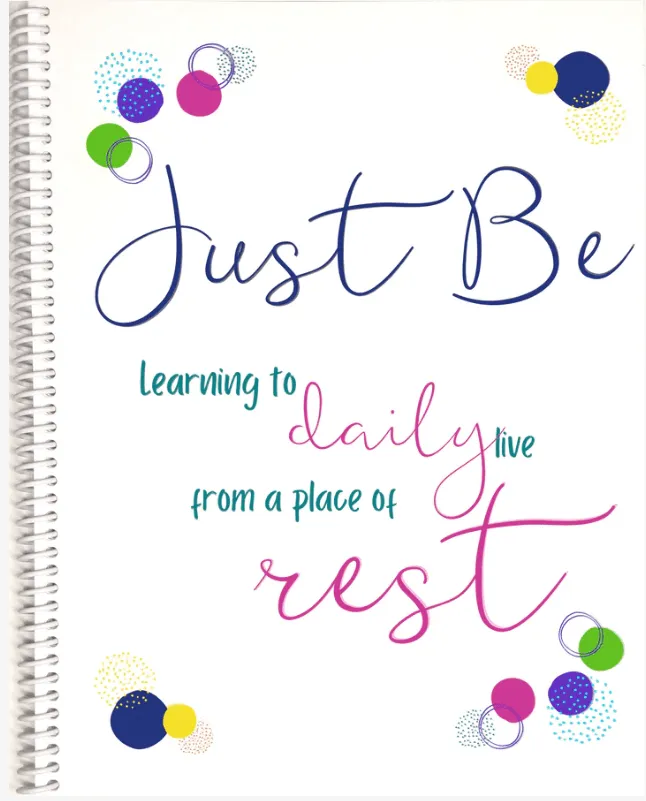 Just Be
Learning to
daily live
from a place of
rest